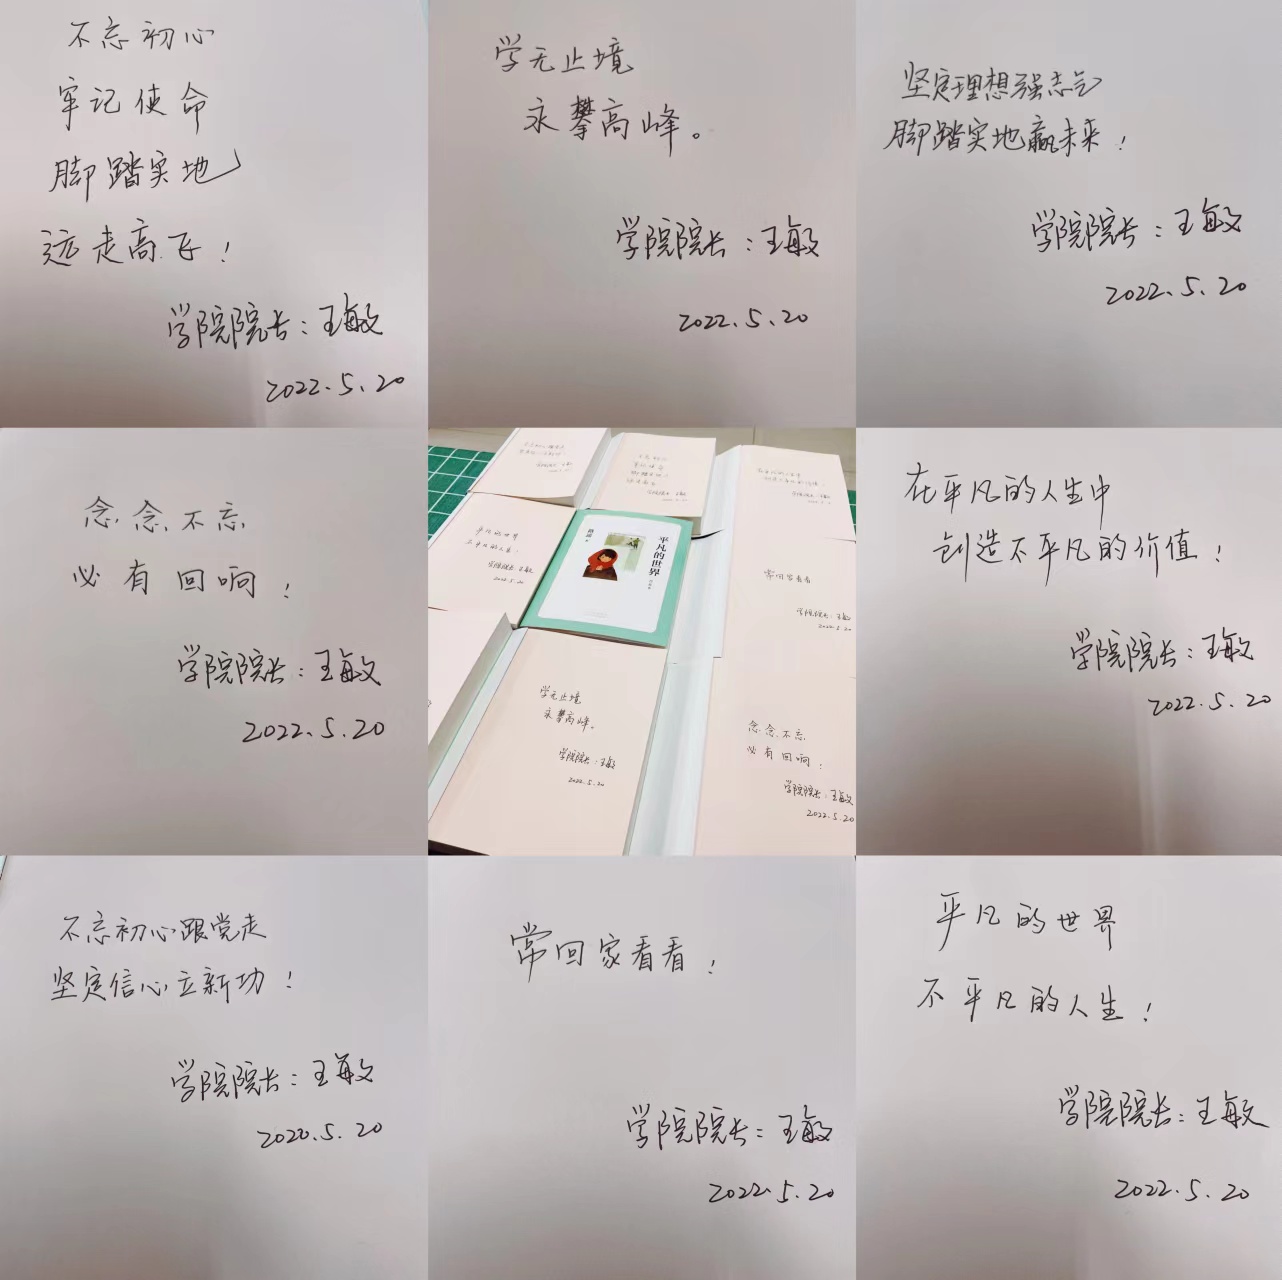 不忘初心
牢记使命
脚踏实地
远走高飞！
学院院长：王敏
2022.5.20
学无止境
永攀高峰。
学院院长：王敏
2022.5.20
坚定理想强志气
脚踏实地赢未来！
学院院长：王敏
2022.5.20
念念不忘
必有回响！
学院院长：王敏
2022.5.20
平凡的世界
不平凡的人生！
学院院长：王敏
2022.5.20
平凡的世界
路遥
常回家看看
学院院长：王敏
2022.5.20
学无止境
永攀高峰。
学院院长：王敏
2022.5.20
念念不忘
必有回响！
学院院长：王敏
2022.5.20
在平凡的人生中
创造不平凡的价值！
学院院长：王敏
2022.5.20
不忘初心跟党走
坚定信心立新功！
学院院长：王敏
2020.5.20
常回家看看！
学院院长：王敏
2022.5.20
平凡的世界
不平凡的人生！
学院院长：王敏
2022.5.20